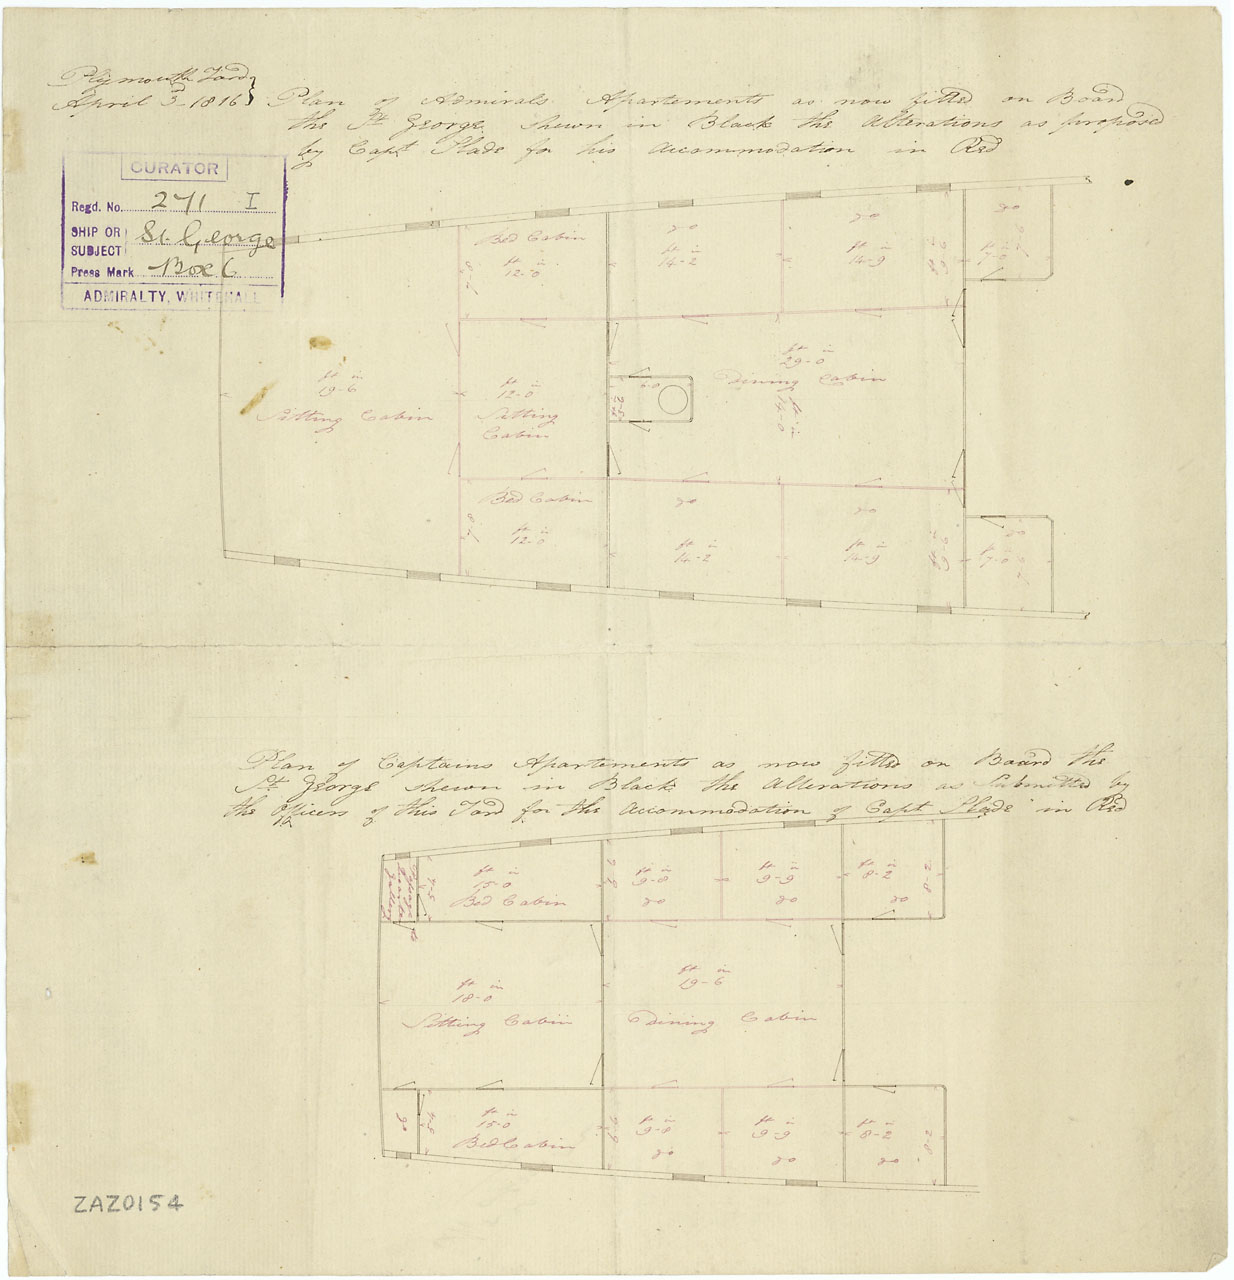 Plymouth Yard
April 3d 1816
Plan of Admirals Apartements as now fitted on Board
the St. George shewn in Black the Alterations as proposed
by Capt. Slade for his accommodation in Red
CURATOR
Regd. No. 271 I
SHIP OR SUBJECT St. George
Press Mark Box 6
ADMIRALTY, WHITEHALL
Bed Cabin
ft in
12-0
do
ft in
14-2
do
ft in
14-9
9-6
do
ft in
7-0
ft in
19-6
Sitting Cabin
ft in
12-0
Sitting
Cabin
ft in
29-0
Dining Cabin
ft in
14-0
Bed Cabin
ft in
12-0
do
ft in
14-2
do
ft in
14-9
ft in
9-6
do
ft in
7-0
Plan of Captains Apartements as now fitted on Board the
St. George shewn in Black the Alterations as Submitted by
the Officers of this Yard for the accommodation of Capt. Slade in Red
ft in
15-0
Bed Cabin
ft in
9-8
do
ft in
9-9
do
ft in
8-2
do
8-2
ft in
18-0
Sitting Cabin
ft in
19-6
Dining Cabin
do
ft in
15-0
Bed Cabin
ft in
9-8
do
ft in
9-9
do
ft in
8-2
do
8-2
ZAZ0154